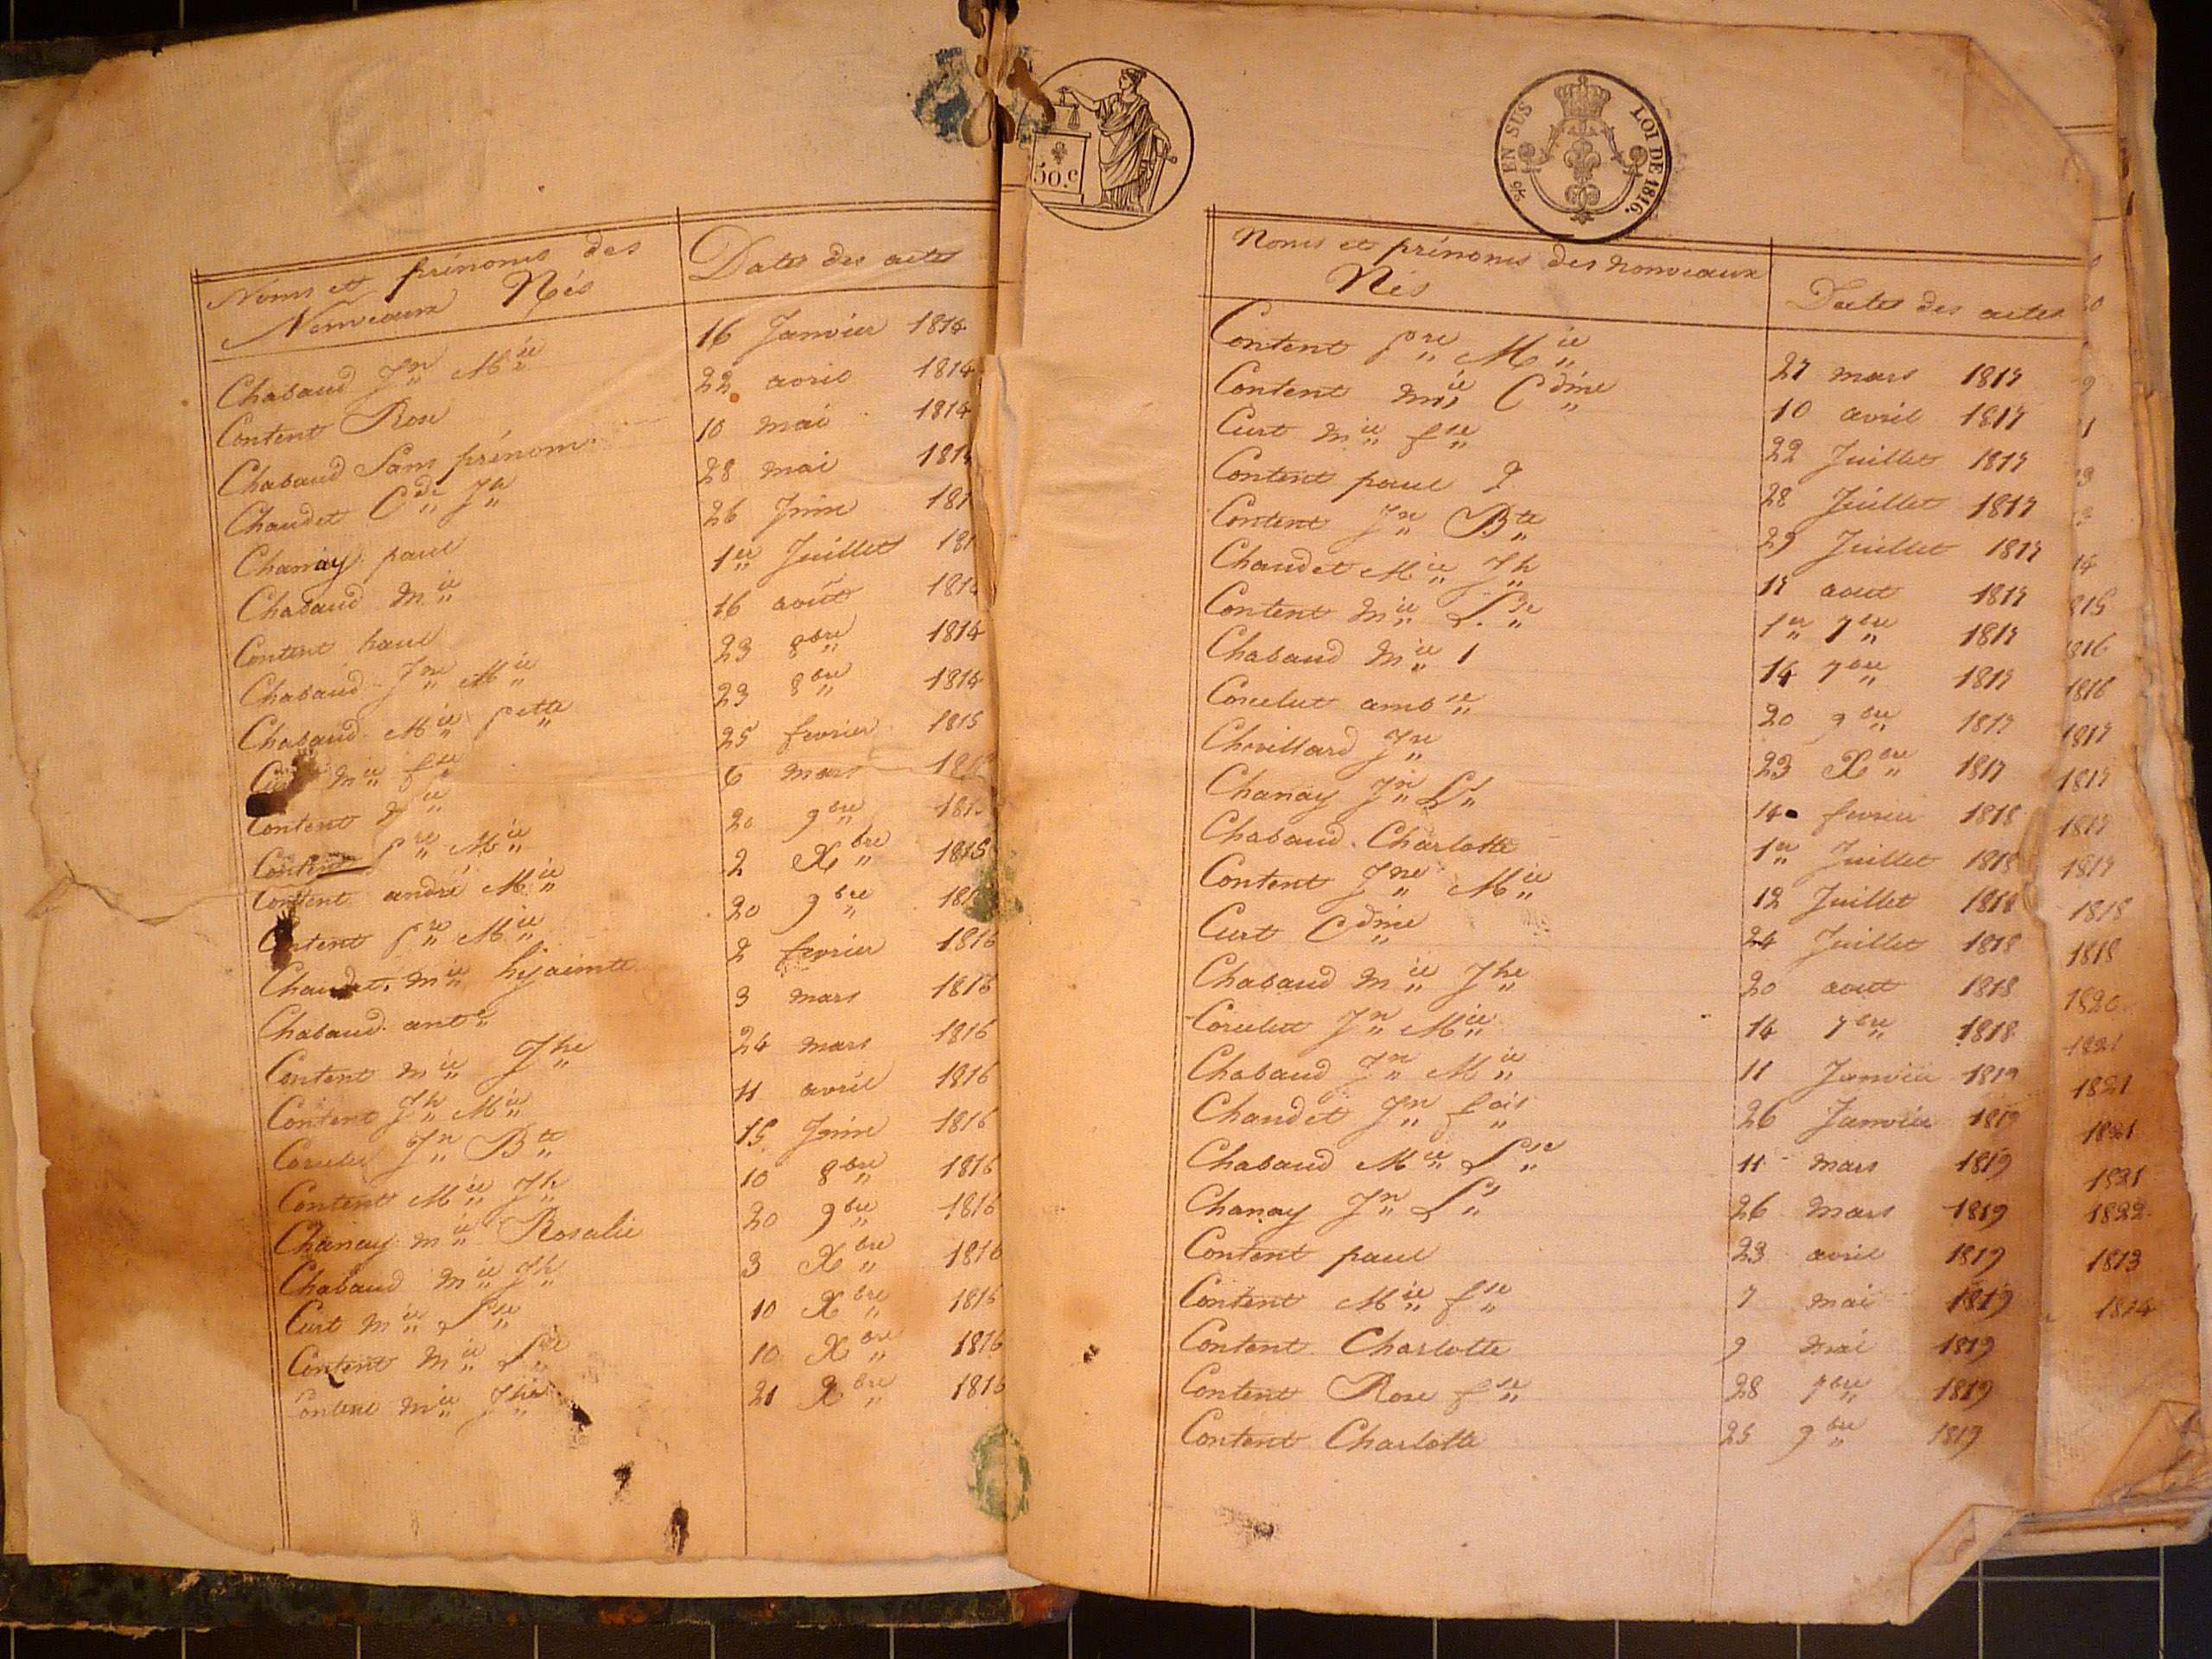 Noms et prénoms des
Nouveaux Nés
Dates des actes
Chabaud Jn Mie 16 Janvier 1814
Content Rose 22 avril 1814
Chabaud Sans prénom 10 mai 1814
Chaudet Cde Jh 28 mai 181
Chanay paul 26 Juin 181
Chabaud mie 1er Juillet 181
Content paul 16 août 181
Chabaud Jne Mie 23 8bre 1814
Chabaud Mie pette 23 8bre 1814
mie fse 25 fevrier 1815
Content mie 6 mars 181
Content pre Mie 20 9bre 181
Content andré Mie 2 Xbre 1815
Content pre Mie 20 9bre 181
Chaudet mie hyainte 2 fevrier 1816
Chabaud ante 3 mars 1816
Content mie Jhe 24 mars 1816
Content Jh Mie 11 avril 1816
Jn Bte 15 Juin 1816
Content Mie Jh 10 8bre 1816
Chanay mie Rosalie 20 9bre 1816
Chabaud mie Jh 3 Xbre 1816
Curt mie Lse 10 Xbre 1816
Content mie 10 Xbre 1816
Content mie Jhe 21 Xbre 1816
50.c
EN SUS LOI DE 1816.
Noms et prénoms des nouveaux
Nés
Dates des actes
Content pre Mie 27 mars 1817
Content mie Cdine 10 avril 1817
Curt mie fse 22 Juillet 1817
Content paul 2 28 Juillet 1817
Content Jn Bte 29 Juillet 1817
Chaudet Mie Jh 17 aout 1817
Content mie Lse 1er 7bre 1817
Chabaud mie 1 14 7bre 1817
Corcelut ambse 20 9bre 1817
Chevillard Jne 23 Xbre 1817
Chanay Jn Ls 14 fevrier 1818
Chabaud Charlotte 1er Juillet 1818
Content Jne Mie 12 Juillet 1818
Curt Cdine 24 Juillet 1818
Chabaud mie Jhe 20 aout 1818
Corcelut Jn Mie 14 7bre 1818
Chabaud Jn Mie 11 Janvier 1819
Chaudet Jn fois 26 Janvier 1819
Chabaud Mie Lse 11 mars 1819
Chanay Jn Ls 26 mars 1819
Content paul 23 avril 1819
Content Mie fse 7 mai 1819
Content Charlotte 9 mai 1819
Content Rose fse 28 7bre 1819
Content Charlotte 25 9bre 1819
14
815
816
1816
1817
1817
1817
1817
1818
1818
1820
1821
1821
1821
1821
1822
1813
1814